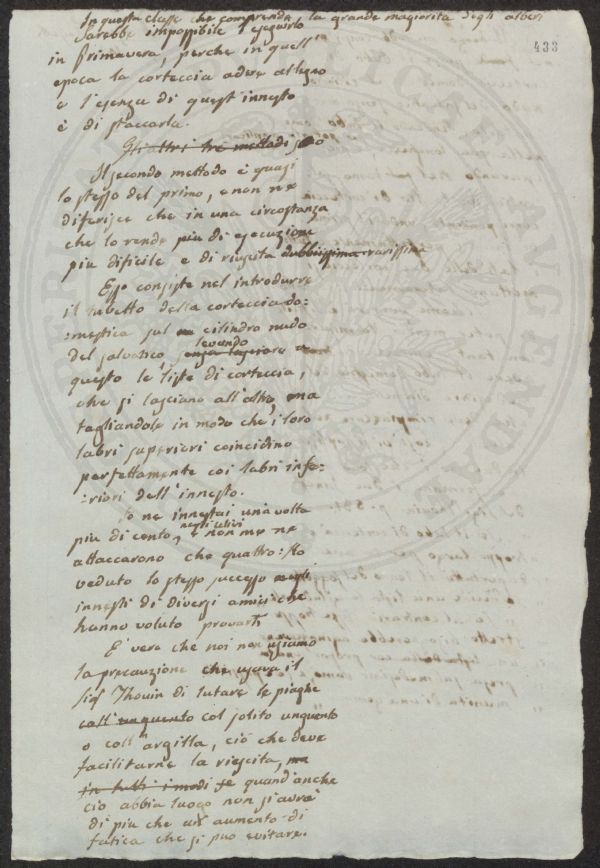 In questa classe che comprende la grande magiorita degli alberi
Sarebbe impossibile l'eseguirlo
433
in Primavera, perche in quell'
epoca la corteccia adere al legno
e l'esenza di quest innesto
è di staccarla.
Gli altri tre mettodi
Il secondo mettodo è quasi
lo stesso del primo, e non ne
diferisce che in una circostanza
che lo rende più di esecuzione
piu dificile e di riuscita dubbiissima rarissima
Esso consiste nel introdurre
il tubetto della corteccia do:
:mestica sul cilindro nudo
del salvatico, levando
questo le liste di corteccia,
che si lasciano all'altro, ma
tagliandole in modo che i loro
labri superiori coincidino
perfettamente coi labri infe:
:riori dell'innesto.
Io ne innestai una volta
piu di cento, negli ulivi e non me ne
attaccarono che quattro: Ho
veduto lo stesso successo negli
innesti di diversi amici che
hanno voluto provarli
È vero che noi non usiamo
la precauzione che usava il
Sig.r Thouin di lutare le piaghe
coll' unguento col solito unguento
o coll'argilla, ciò che deve
facilitarne la riescita, ma
in tutti i modi se quand'anche
ciò abbia luogo non si avra
di piu che un aumento di
fatica che si puo evitare.